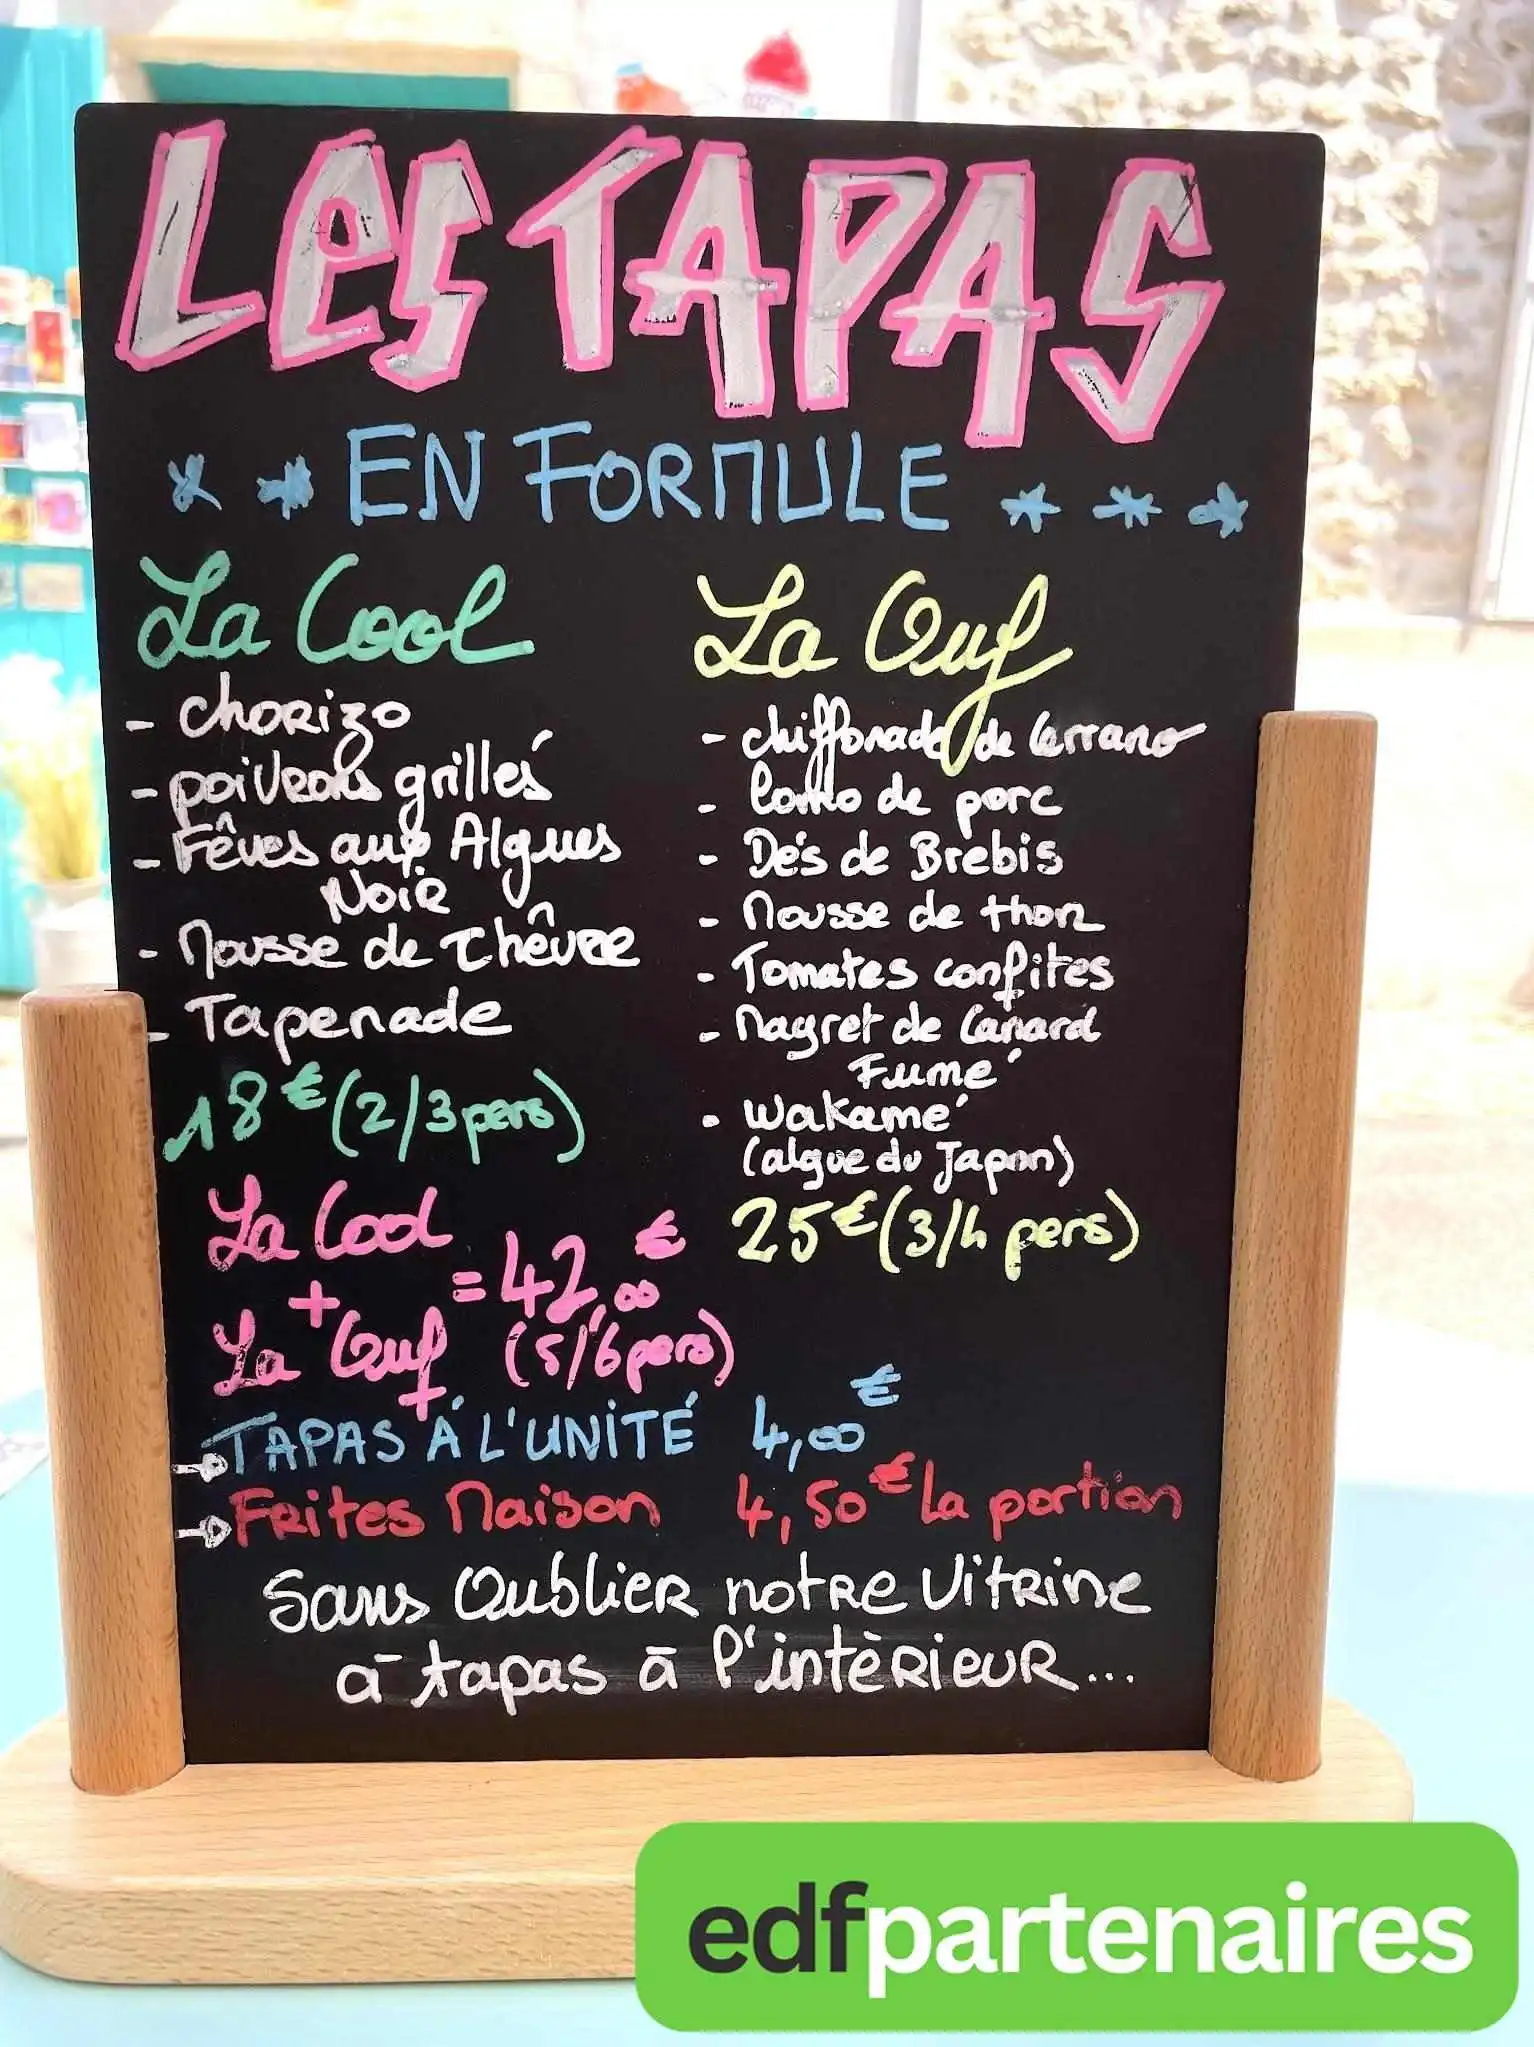 LES TAPAS
EN FORMULE
La Cool
- chorizo
- poivrons grillés
- Fêves aux Algues
Noir
- Mousse de Chêvre
- Tapenade
18€ (2/3 pers)
La Ouf
- chiffonade de Serrano
- lomo de porc
- Dés de Brebis
- Mousse de thon
- Tomates confites
- Magret de Canard
Fumé
- Wakamé
(algue du Japon)
25€ (3/4 pers)
La Cool
+
La Ouf
= 42,00€
(5/6 pers)
+
TAPAS Á L'UNiTÉ 4,00€
Frites Maison 4,50€ La portion
Sans Oublier notre Vitrine
ā tapas ā l'intèrieur...
edfpartenaires